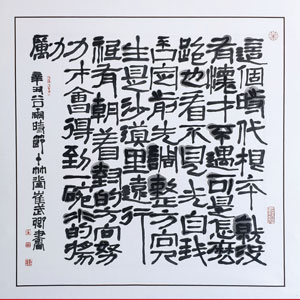 這個時代根本就沒
有懷才不遇可是怎麼
跑也看不見光自我
否定前先調整方向人
生是沙漠里遠行
衹有朝着對的方向努
力才會得到一碗水的獎
勵 辛丑谷雨時節 崔武卿書